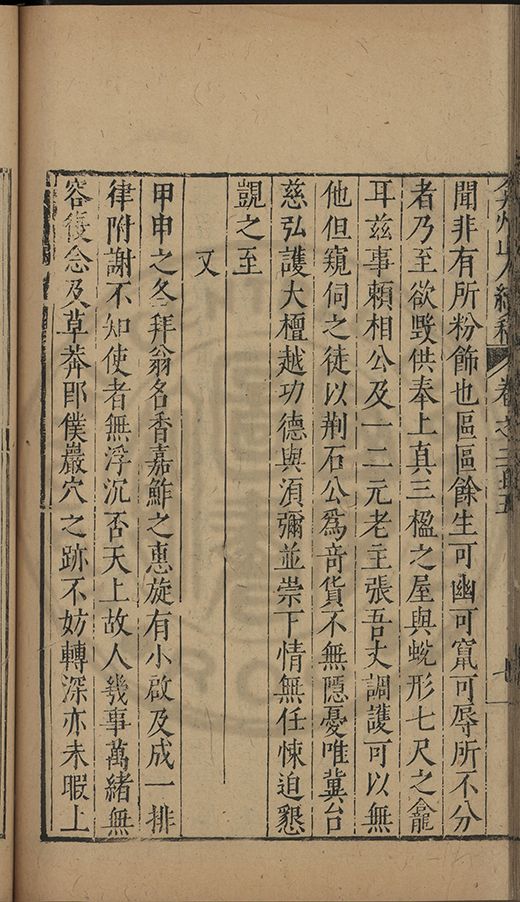 弇州山人續稿 卷之二百五 七
聞非有所粉飾也區區餘生可幽可竄可辱所不分
者乃至欲毀供奉上真三楹之屋與蛻形七尺之龕
耳兹事頼相公及一二元老主張吾丈調護可以無
他但窺伺之徒以荆石公爲竒貨不無隱憂唯冀台
慈弘護大檀越功德與湏彌並崇下情無任悚迫懇
覬之至
又
甲申之冬拜翁名香嘉鮓之惠旋有小啟及成一排
律附謝不知使者無浮沉否天上故人幾事萬緒無
容復念及草莽郎僕巖穴之跡不妨轉深亦未暇上